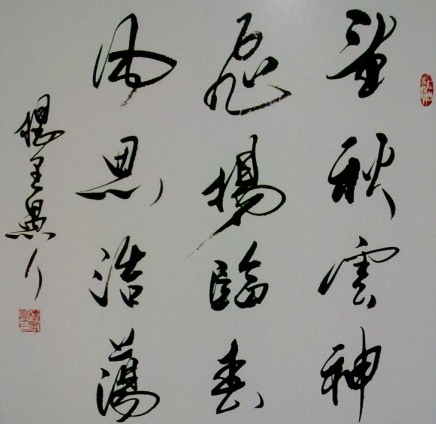 望秋雲神
飛揚臨春
風思浩蕩